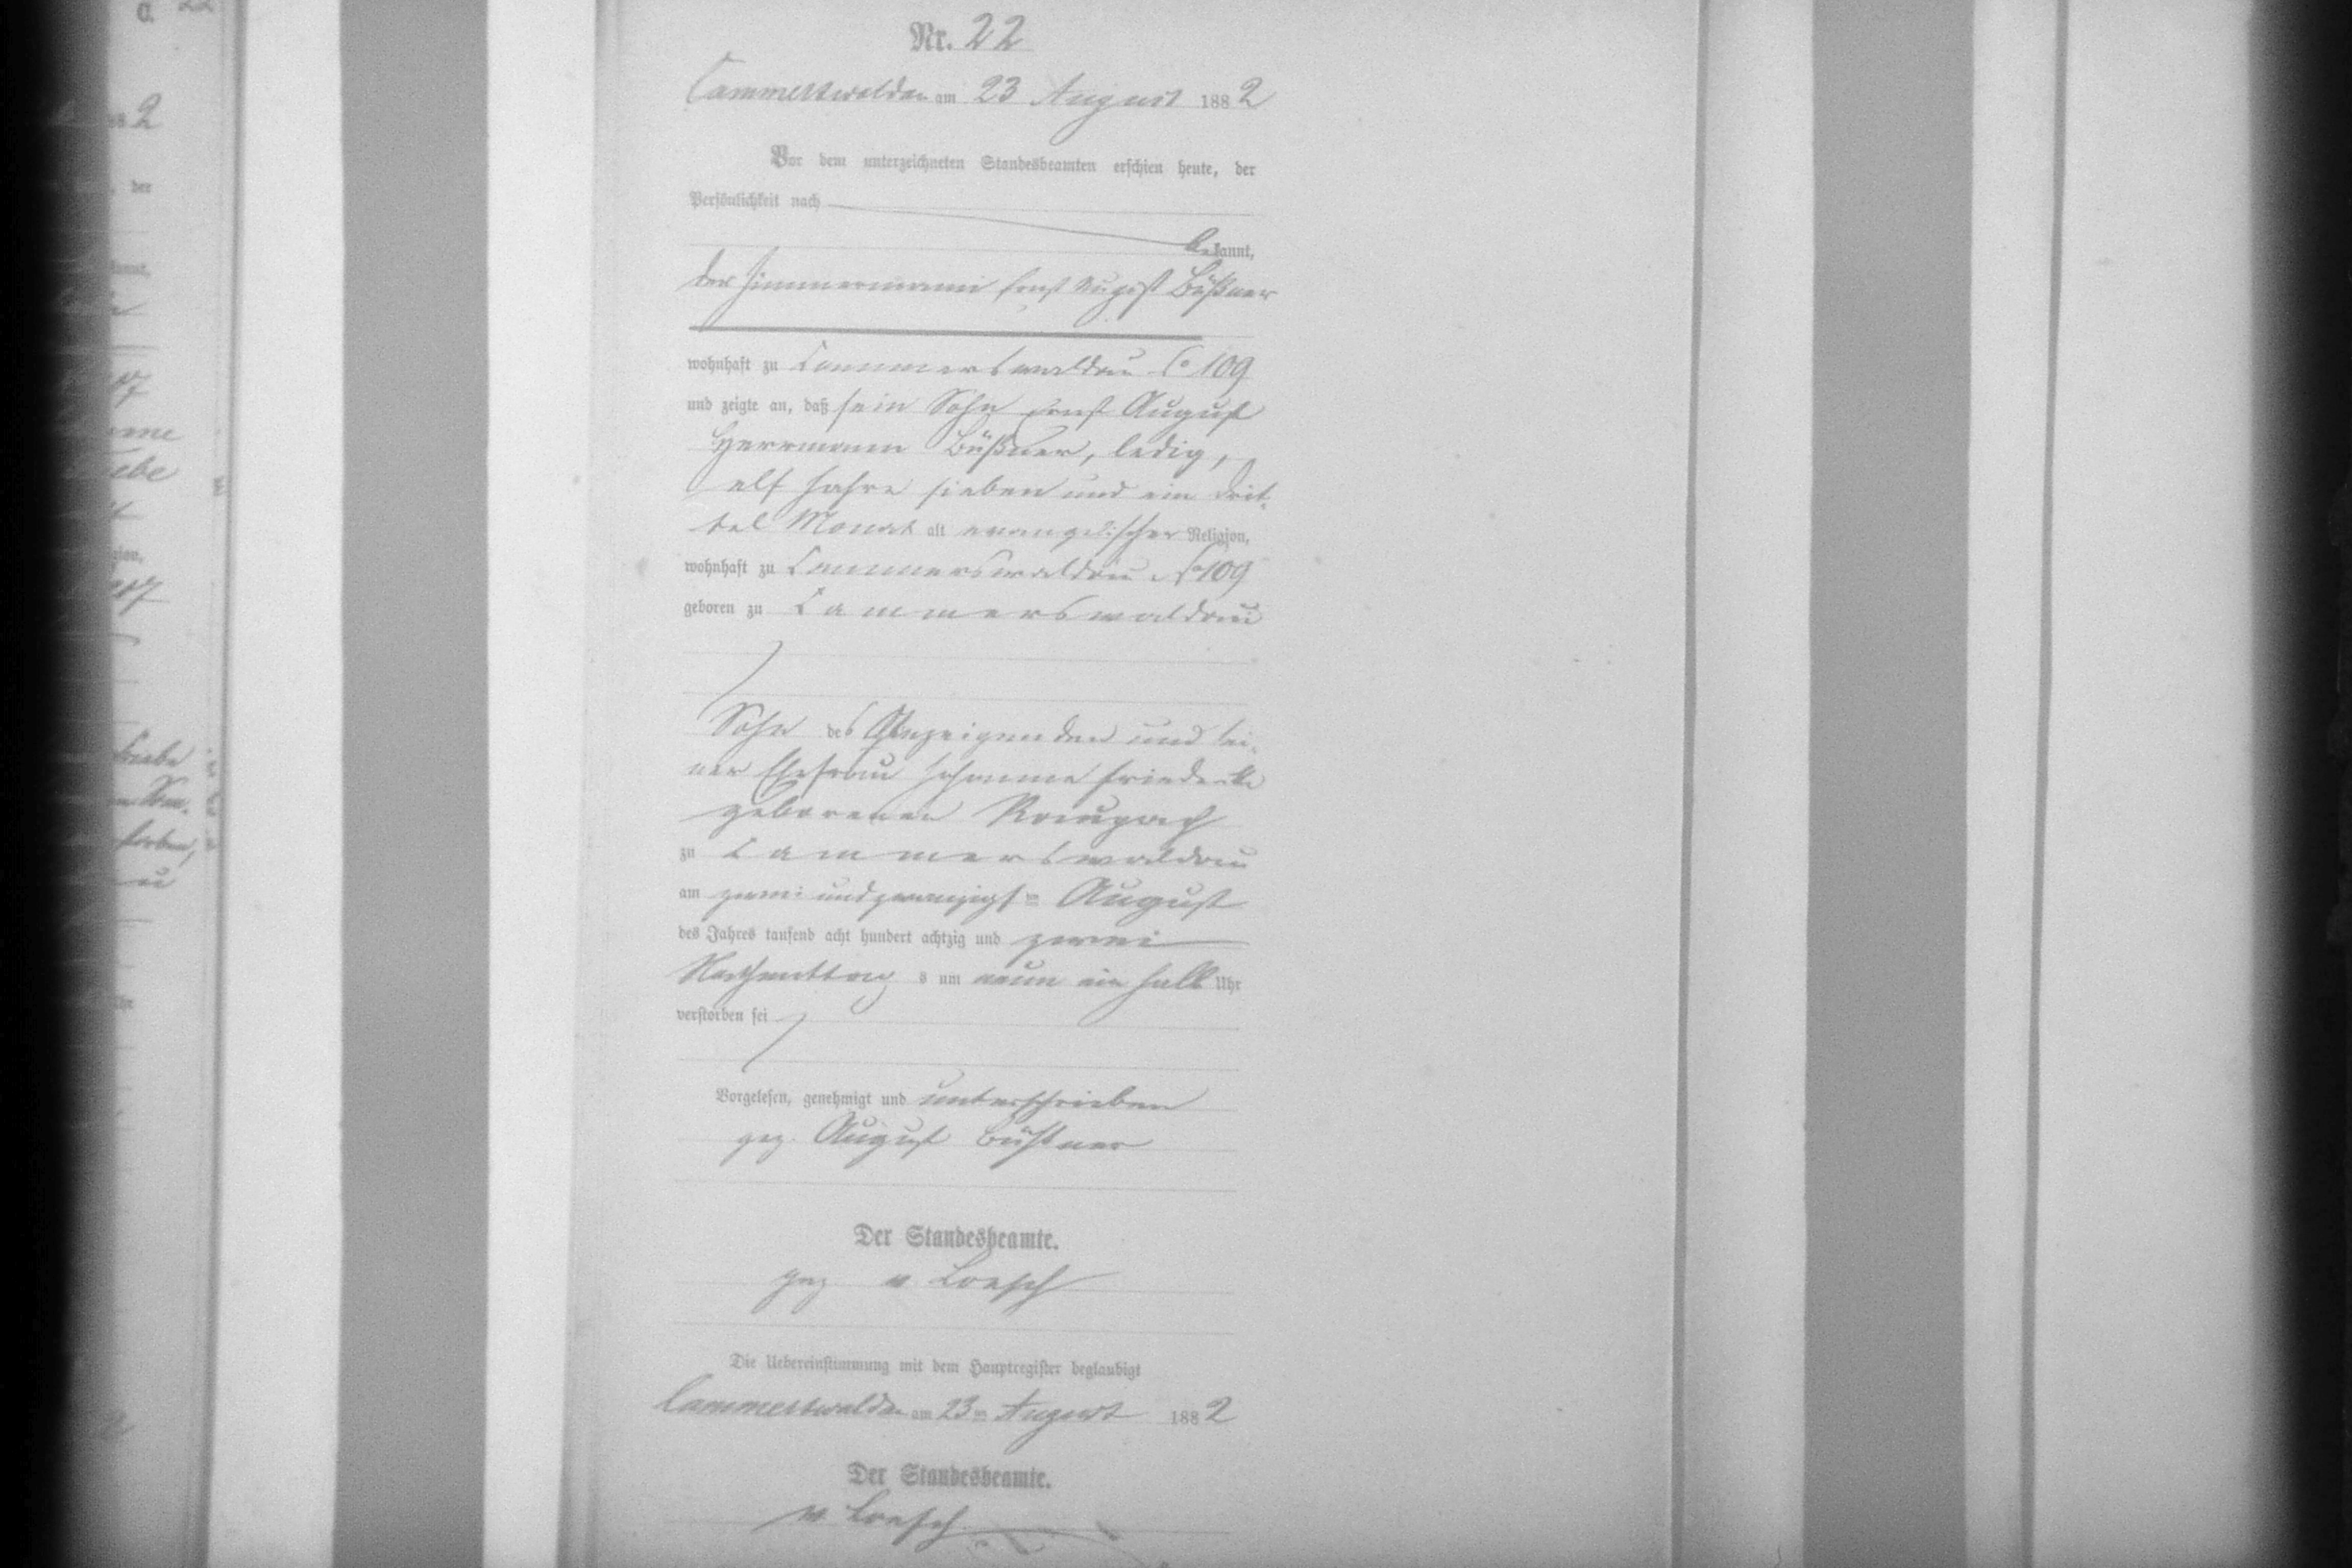 Nr. 22
Cammerswaldau am 23 August 1882
Vor dem unterzeichneten Standesbeamten erschien heute, der
Persönlichkeit nach
bekannt,
der Zimmermann Ernst August Büßner
wohnhaft zu Cammerswaldau No 109
und zeigte an, daß sein Sohn Ernst August
Herrmann Büßner, ledig,
elf Jahre sieben und ein Drit-
tel Monat alt evangelischer Religion,
wohnhaft zu Cammerswaldau No 109
geboren zu Cammerswaldau
Sohn des Anzeigenden und sei-
ner Ehefrau Johanne Friederike
geborenen Raupach
zu Cammerswaldau
am zwei und zwanzigsten August
des Jahres tausend acht hundert achtzig und zwei
Nachmittags um neun ein halb Uhr
verstorben sei
Vorgelesen, genehmigt und unterschrieben
gez. August Büßner
Der Standesbeamte.
gez v Loesch
Die Uebereinstimmung mit dem Hauptregister beglaubigt
Cammerswaldau am 23ten August 1882
Der Standesbeamte.
v Loesch